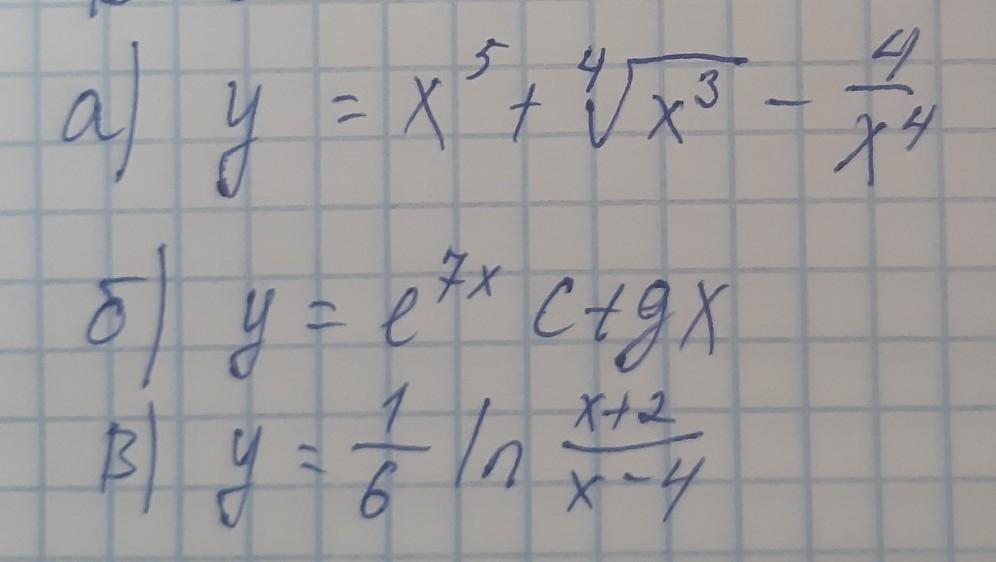 а) y = x⁵ + ⁴√x³ − 4/x⁴
б) y = e⁷ˣ ctgx
в) y = 1/6 ln (x+2)/(x−4)